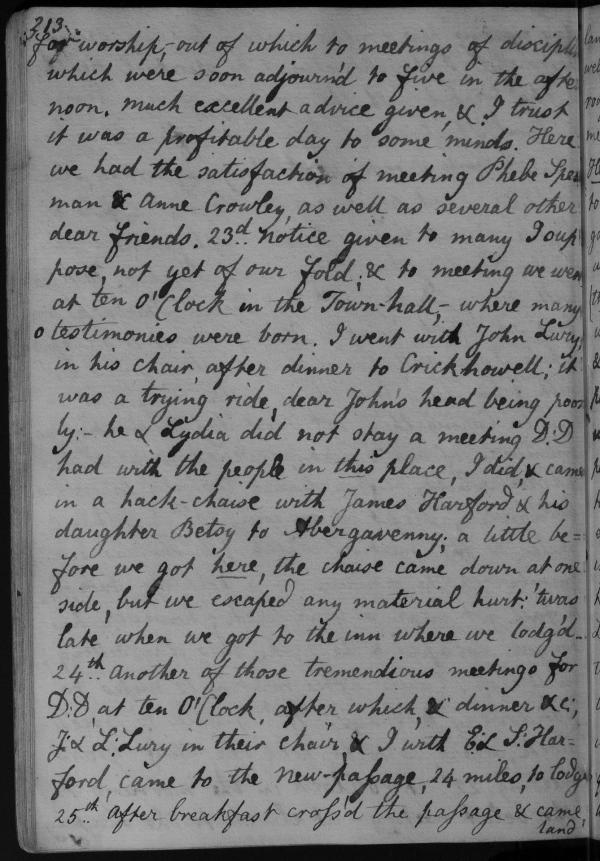 213
for worship,- out of which to meetings of discipli
which were soon adjourn'd to five in the after
noon. much excellent advice given, & I trust
it was a profitable day to some minds. Here
we had the satisfaction of meeting Phebe Spea
man & Anne Crowley, as well as several other
dear friends. 23.d notice given to many I sup
pose, not yet of our fold; & to meeting we wen
at ten O'Clock in the Town-hall,- where many
o testimonies were born. I went with John Lury,
in his chair, after dinner to Crickhowell; it
was a trying ride, dear John's head being poor
ly:- he & Lydia did not stay a meeting D:D
had with the people in this place, I did, & came
in a hack-chaise with James Harford & his
daughter Betsy to Abergavenny; a little be=
fore we got here, the chaise came down at one
side, but we escaped any material hurt: 'twas
late when we got to the inn where we lodg'd-
24.th another of those tremendious meetings for
D:D, at ten O'Clock, after which, & dinner &c;,
J: & L: Lury in their chair, & I with E: & S: Har=
ford, came to the new-passage, 24 miles, to lodge
25.th after breakfast cross'd the passage & came,
land